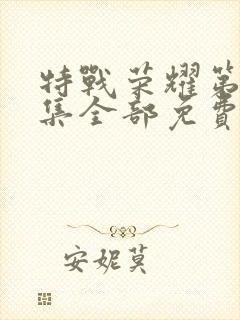 特戰荣耀第
集全部免費
安妮莫